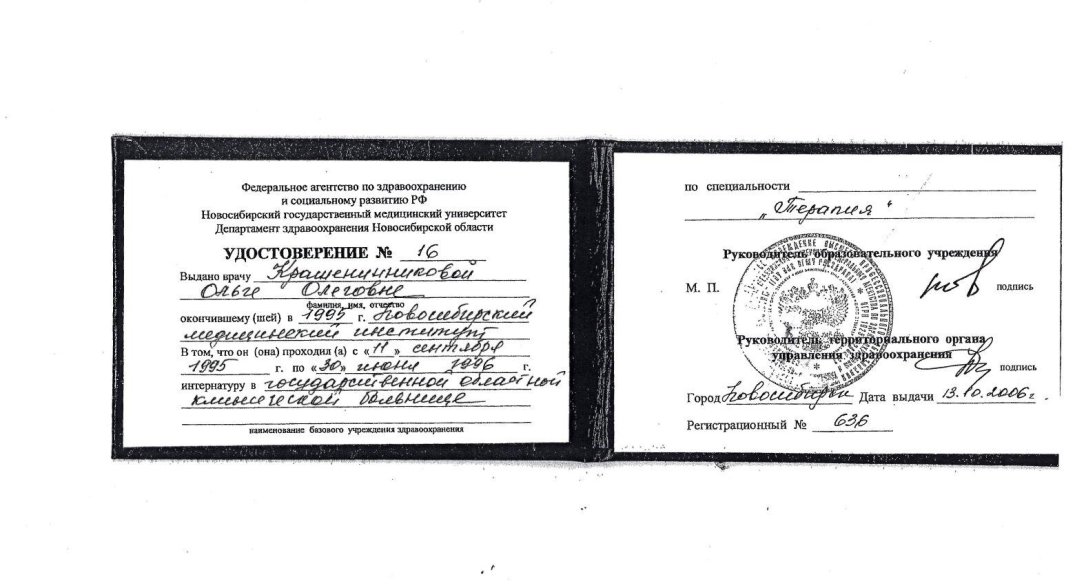 Федеральное агентство по здравоохранению
и социальному развитию РФ
Новосибирский государственный медицинский университет
Департамент здравоохранения Новосибирской области
УДОСТОВЕРЕНИЕ № 16
Выдано врачу Крашенинниковой
Ольге Олеговне
фамилия, имя, отчество
окончившему (шей) в 1995 г. Новосибирский
медицинский институт
В том, что он (она) проходил (а) с «11» сентября
1995 г. по «30» июня 1996 г.
интернатуру в государственной областной
клинической больнице
наименование базового учреждения здравоохранения
по специальности
„Терапия“
Руководитель образовательного учреждения
М. П. подпись
Руководитель территориального органа
управления здравоохранения
подпись
Город Новосибирск Дата выдачи 13.10.2006г.
Регистрационный № 636